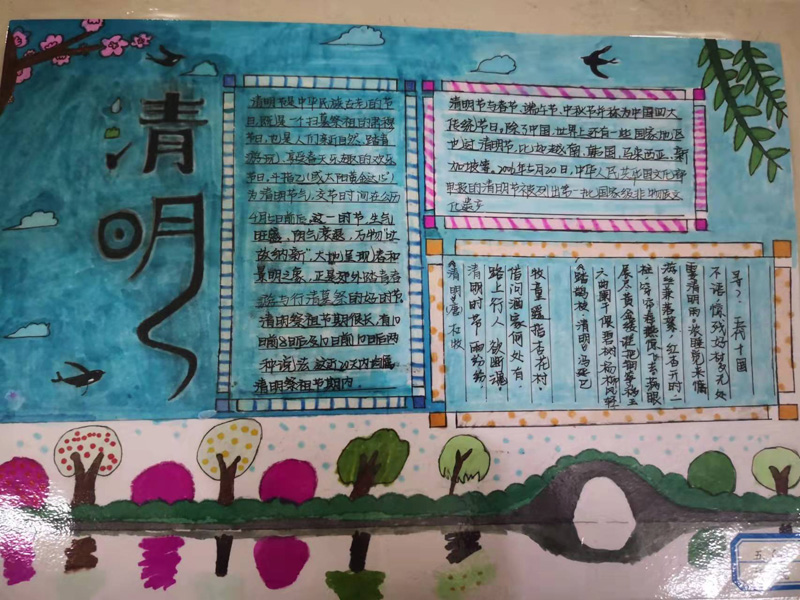 清明
清明节是中华民族古老的节
日,既是一个扫墓祭祖的肃穆
节日,也是人们亲近自然、踏青
游玩、享受春天乐趣的欢乐
节日,斗指乙(或太阳黄经达15°)
为清明节气,交节时间在公历
4月5日前后。这一时节,生气
旺盛、阴气衰退,万物"吐
故纳新",大地呈现春和
景明之象,正是郊外踏青春
游与行清墓祭的好时节。
清明祭祖节期很长,有10
日前8日后及10日前10日后两
种说法,这近20天内均属
清明祭祖节期内
清明节与春节、端午节、中秋节并称为中国四大
传统节日。除了中国,世界上还有一些国家地区
也过清明节,比如越南、韩国、马来西亚、新
加坡等。2006年5月20日,中华人民共和国文化部
申报的清明节被列出第一批国家级非物质文
化遗产
《清明》唐 杜牧
清明时节雨纷纷,
路上行人欲断魂。
借问酒家何处有,
牧童遥指杏花村。
《踏鹊枝·清明》冯延巳
六曲阑干偎碧树,杨柳风轻,
展尽黄金缕。谁把钿筝移玉
柱,穿帘燕
飞去。满眼
游丝兼落絮,红杏开时,一
霎清明雨。浓睡觉来慵
不语,惊残好梦无寻处
五代十国